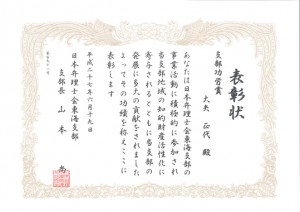 表彰状
支部功労賞
大矢 正代 殿
あなたは日本弁理士会東海支部の
事業活動に積極的に参加され
当支部地域の知的財産活性化に
寄与されるとともに当支部の
発展に多大の貢献をされました
よってその功績を称えここに
表彰します
平成二十七年六月十九日
日本弁理士会東海支部
支部長 山本 尚